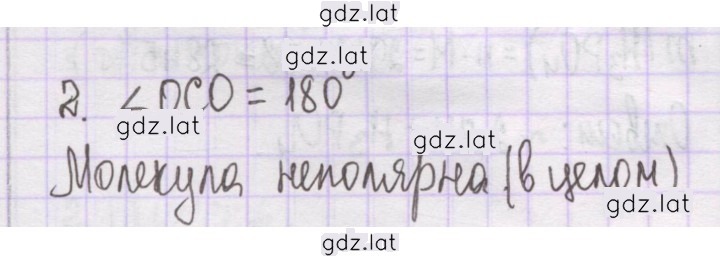 gdz.lat
2. ∠OCO = 180°
gdz.lat
gdz.lat
Молекула неполярна (в целом)
gdz.lat
gdz.lat